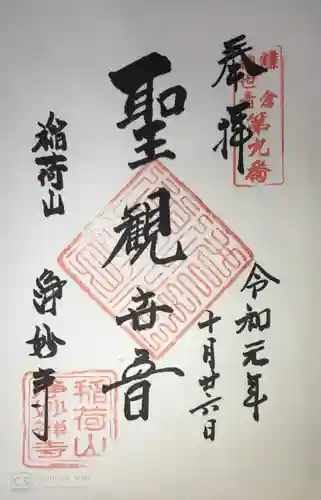 鎌倉
観世音
第九番
奉拝
令和元年
十月廿六日
聖観世音
稲荷山
浄妙寺
稲荷山
浄妙禅寺
CS